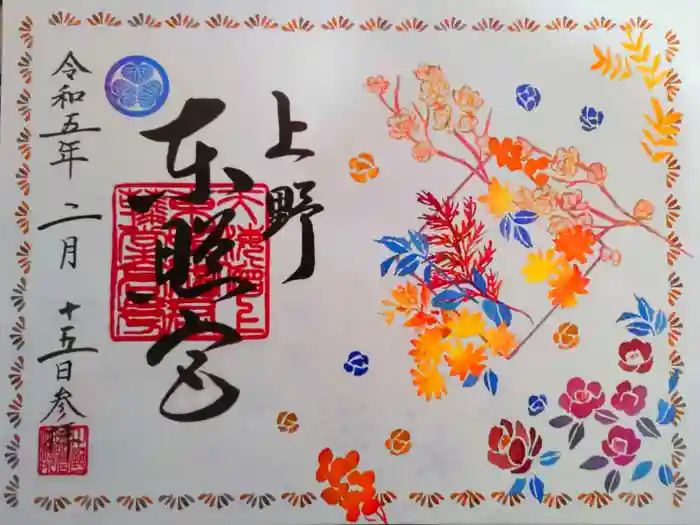 上野
東照宮
令和五年 二月 十五日参拝